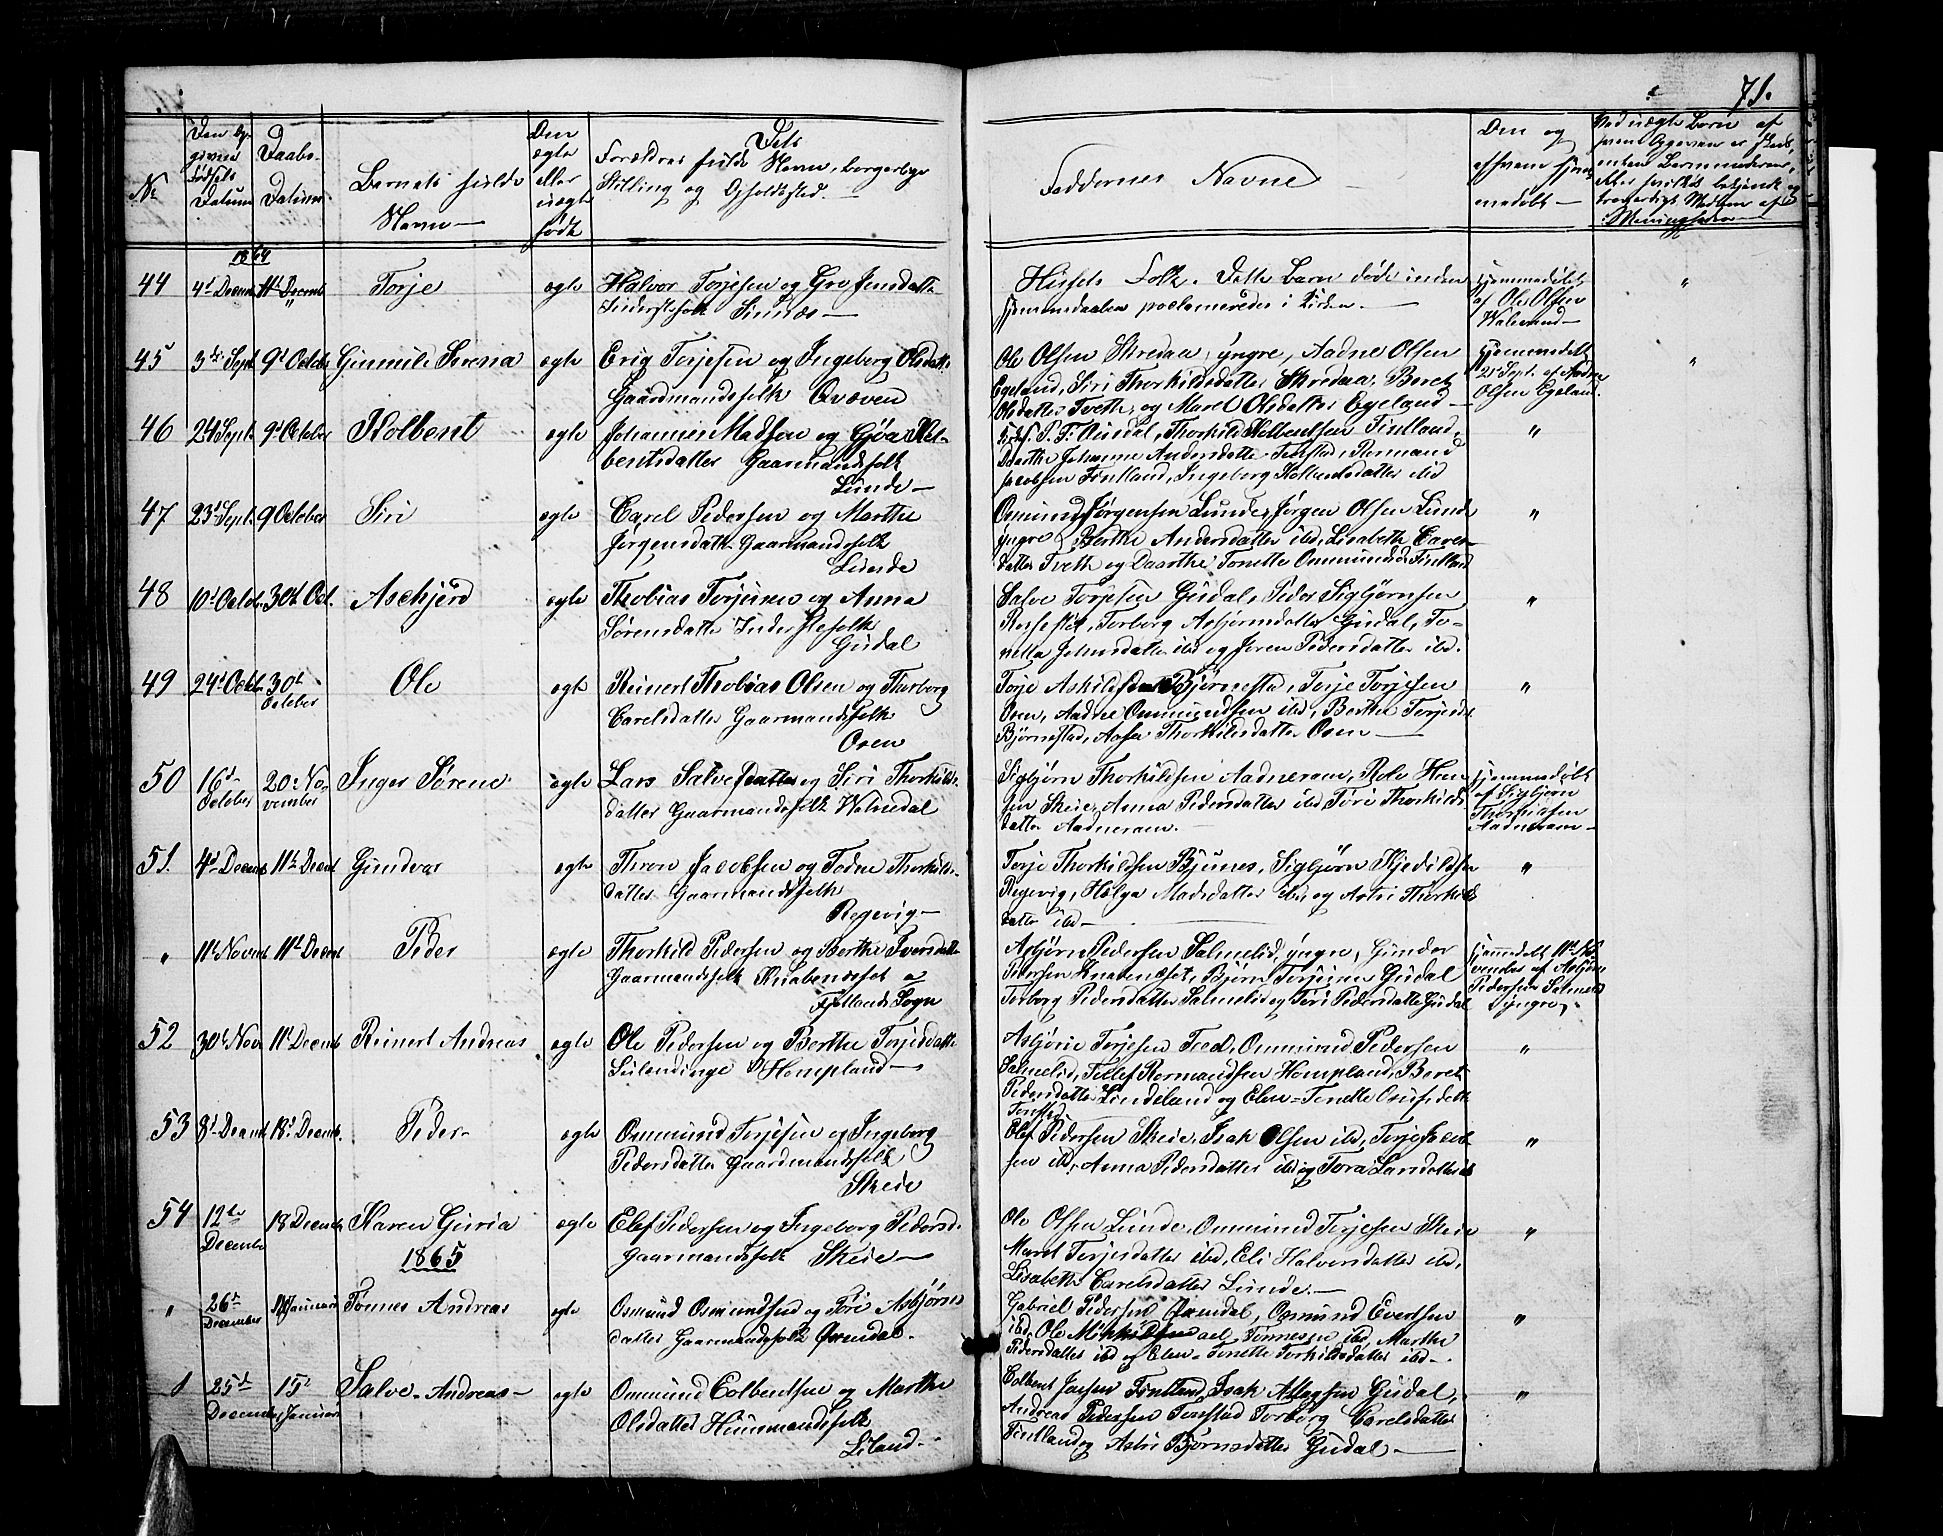 71.
No
Den Op-
given
Fødsels
Datum
Daabs-
Datum
Barnets fulde
Navn —
Den
ægte
eller
uægte
født
Dets
Forældres fulde Navn, borgerlige
Stilling og Opholdssted. —
Faddernes Navne —
Den og
af hvem hjem-
medøbt —
Ved uægte Børn af
hvem Opgaven er
1864
44 4d Decmb 11te Decemb Torje ægte Halvor Torjesen og Gro Jensdatte
Inderstefolk Sinnæs —
Husets Folk. Dette Barn døde inden
hjemmedaaben proclameredes i Kirken. —
hjemmedøbt
af Ole Olsen
45 3die Sept. 9d Octobr Gunnile Serena ægte Erig Torjesen og Ingeborg Olsdatte.
Gaardmandsfolk Qvæven
Ole Olsen Skredaa, yngre, Aadne Olsen
Egeland, Siri Thorkildsdatter Skredaa, Beret
Olsdatter Tveth, og Maret Olsdatter Egeland —
hjemmedøbt
21 Sept. af Aadne
Olsen Egeland.
46 24d Sept. 9d October Kolbent ægte Johannes Madsen og Gjøa Kol-
bentsdatter Gaarmandsfolk
Lunde —
Thorkild Kolbentsen Fintland,
Dorthe Johanne Andersdatte Tonstad, Reimand
Jacobsen Fintland, Ingeborg Kolbentsdatter ibid
"
47 23d Sept. 9 October Siri ægte Carel Pedersen og Marthe
Jørgensdatte Gaarmandsfolk
Lunde
Osmund Jørgensen Lunde, Jørgen Olsen Lunde
yngre, Berthe Andersdatter ibd, Lisabeth Carels-
datter Tveth og Dorthe Tonette Ommundsd. Fintland
"
48 10d Octobr. 30te Oct. Aschjerd ægte Thobias Torjusen og Anna
Sørensdatte Inderstefolk
Gudal
Salve Torjesen Gudal, Peder Sigbjørnsen
Torborg Asbjørnsdatter Gudal, To-
nette Johnsdatter ibd og Joren Pedersdatter ibd.
"
49 24d Octobr. 30te
October Ole ægte Reinert Thobias Olsen og Thorborg
Carelsdatter Gaarmandsfolk
Osen
Torje Askildsen Bjørnestad, Torje Torjesen
Osen, Aadne Ommundsen ibd, Berthe Torjesd.
Bjørnestad, Aase Thorkildsdatter Osen —
"
50 16d
October 20de No-
vember Inger Sørene ægte Lars Salvesen og Siri Thorkilds-
datter Gaarmandsfolk
Sigbjørn Thorkildsen Aadneram, Rolv Han-
sen Skeie, Anna Pedersdatter ibd Tori Thorkilds
datter Aadneram. —
hjemmedøbt
af Sigbjørn
Thorkildsen
Aadneram —
51. 4d Decemb 11te Decemb Gundvar ægte Thron Jacobsen og Todne Thorkilds-
datter Gaarmandsfolk
Regevig —
Torje Thorkildsen Bjunes, Sigbjørn Kjedildsen
Regevig, Helga Madsdatter ibd og Astri Thorkilds
datter ibd —
"
" 11te Novmb 11te Decmb Peder ægte Thorkild Pedersen og Berthe Iversdatte
Gaarmandsfolk Knabenæset af
Fjellands Sogn
Asbjørn Pedersen Salmelid, yngre, Gunder
Pedersen Knabenæset, Bjørn Torjusen Gudal
Torborg Pedersdatter Salmelid og Tori Pedersdatte Gudal
hjemmedøbt 11te No-
vember af Asbjørn
Pedersen Salmelid
yngre.
52 30te Nov. 11te Decmb Reinert Andreas ægte Ole Pedersen og Berthe Torjesdatte
Hompland —
Asbjørn Torjesen Ommund Pedersen
Salmelid, Tellef Reimandsen Hompland, Beret
Pedersdatter Lindeland og Elen Tonette Osufsdatte
Tonstad.
"
53 8d Decmb 18d Decmb. Peder ægte Ommund Torjesen og Ingeborg
Pedersdatte Gaardmandsfolk
Skeie
Elef Pedersen Skeie, Isak Olsen ibd, Torje
sen ibd, Anna Pedersdatter ibd og Tora Larsdatter ib
"
54 12te
December 18 Decmb Karen Guria ægte Elef Pedersen og Ingeborg Pedersd.
Gaarmandsfolk Skeie —
Ole Olsen Lunde, Ommund Torjesen Skeie
Maret Torjesdatter ibd, Eli Halvorsdatter ibd,
Lisabeth Carelsdatter Lunde. —
"
1865
" 26d
December Januari Tonnes Andreas ægte Osmund Osmundsen og Tori Asbjørns
datter Gaarmandsfolk Ousdal.
Gabriel Pedersen Ousdal, Osmund Evertsen
ibd, Ole Tonnesen ibd, Marthe
Pedersdatter ibd og Elen Tonette Torkildsdatter ibd —
"
1 25d
December 15d
Januari Salve Andreas — ægte Ommund Colbentsen og Marthe
Olsdatter Huusmandsfolk
Liland —
Colbent Fintland, Isak Aslagsen Gudal,
Andreas Pedersen Tonstad Torborg Carelsdatter
Fintland og Astri Bjørnsdatter Gudal —
"